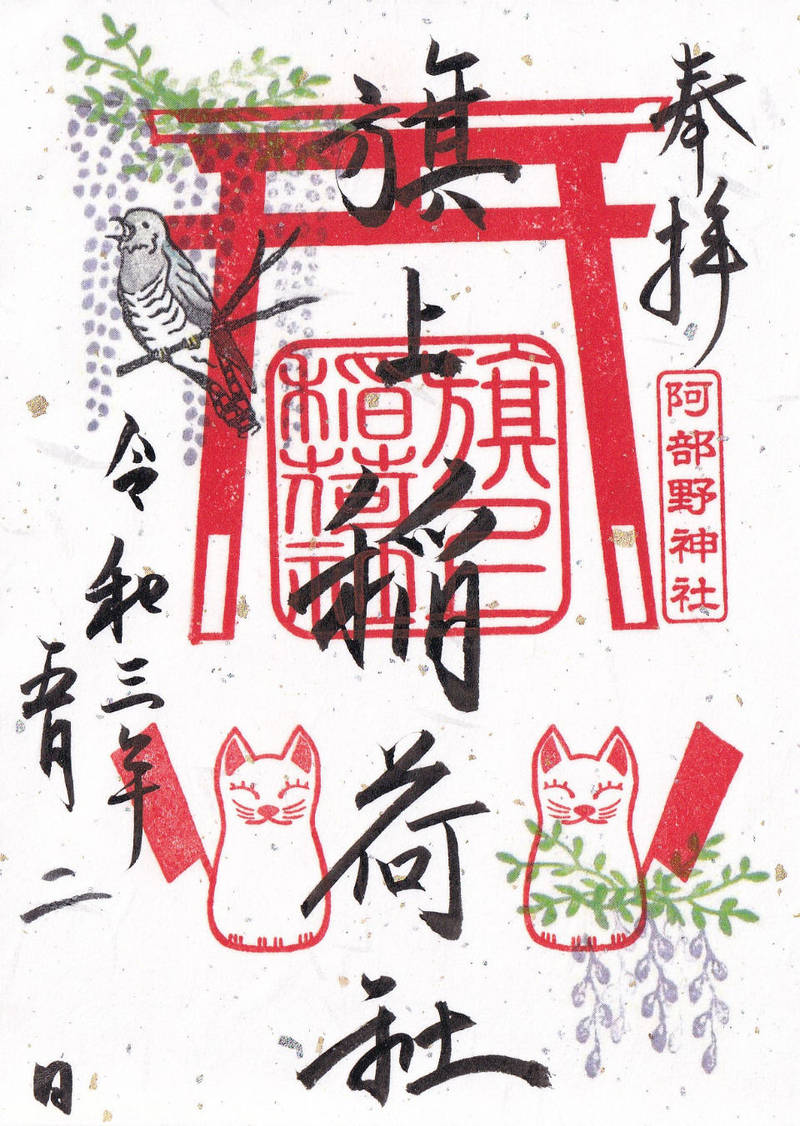 奉拝
阿部野神社
旗上稲荷社
旗上
稲荷社
令和三年
五月二日